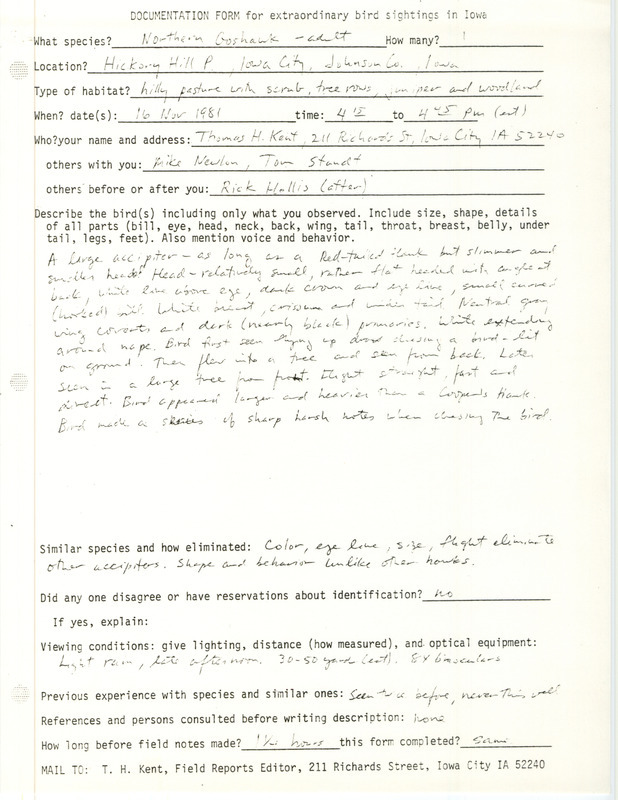 DOCUMENTATION FORM for extraordinary bird sightings in Iowa
What species? Northern Goshawk - adult How many? 1
Location? Hickory Hill P, Iowa City, Johnson Co., Iowa
Type of habitat? hilly pasture with scrub, tree rows, juniper and woodland
When? date(s): 16 Nov 1981 time: 4 15 to 4 45 pm (est)
Who?your name and address: Thomas H. Kent, 211 Richards St, Iowa City IA 52240
others with you: Mike Newlon, Tom Standt
others before or after you: Rick Hollis (after)
Describe the bird(s) including only what you observed. Include size, shape, details
of all parts (bill, eye, head, neck, back, wing, tail, throat, breast, belly, under
tail, legs, feet). Also mention voice and behavior.
A large accipiter - as long as a Red-tailed Hawk but slimmer and
smaller head. Head - relatively small, rather flat headed with
back, white line above eye, dark crown and eye line, small curved
(hooked) bill. White breast, crissum and under tail. Neutral gray
wing coverts and dark (nearly black) primaries. White extending
around nape. Bird first seen flying up draw chasing a bird - lit
on ground. Then flew into a tree and seen from back. Later
seen in a large tree from front. Flight straight, fast and
direct. Bird appeared larger and heavier than a Cooper's Hawk.
Bird made a series of sharp harsh notes when chasing the bird.
Similar species and how eliminated: Color, eye line, size, flight eliminate
other accipiters. Shape and behavior unlike other hawks.
Did any one disagree or have reservations about identification? no
If yes, explain:
Viewing conditions: give lighting, distance (how measured), and optical equipment:
Light rain, late afternoon. 30-50 yards (est). 8X binoculars
Previous experience with species and similar ones: Seen twice before, never this well
References and persons consulted before writing description: none
How long before field notes made? 1 1/2 hours this form completed? same
MAIL TO: T. H. Kent, Field Reports Editor, 211 Richards Street, Iowa City IA 52240